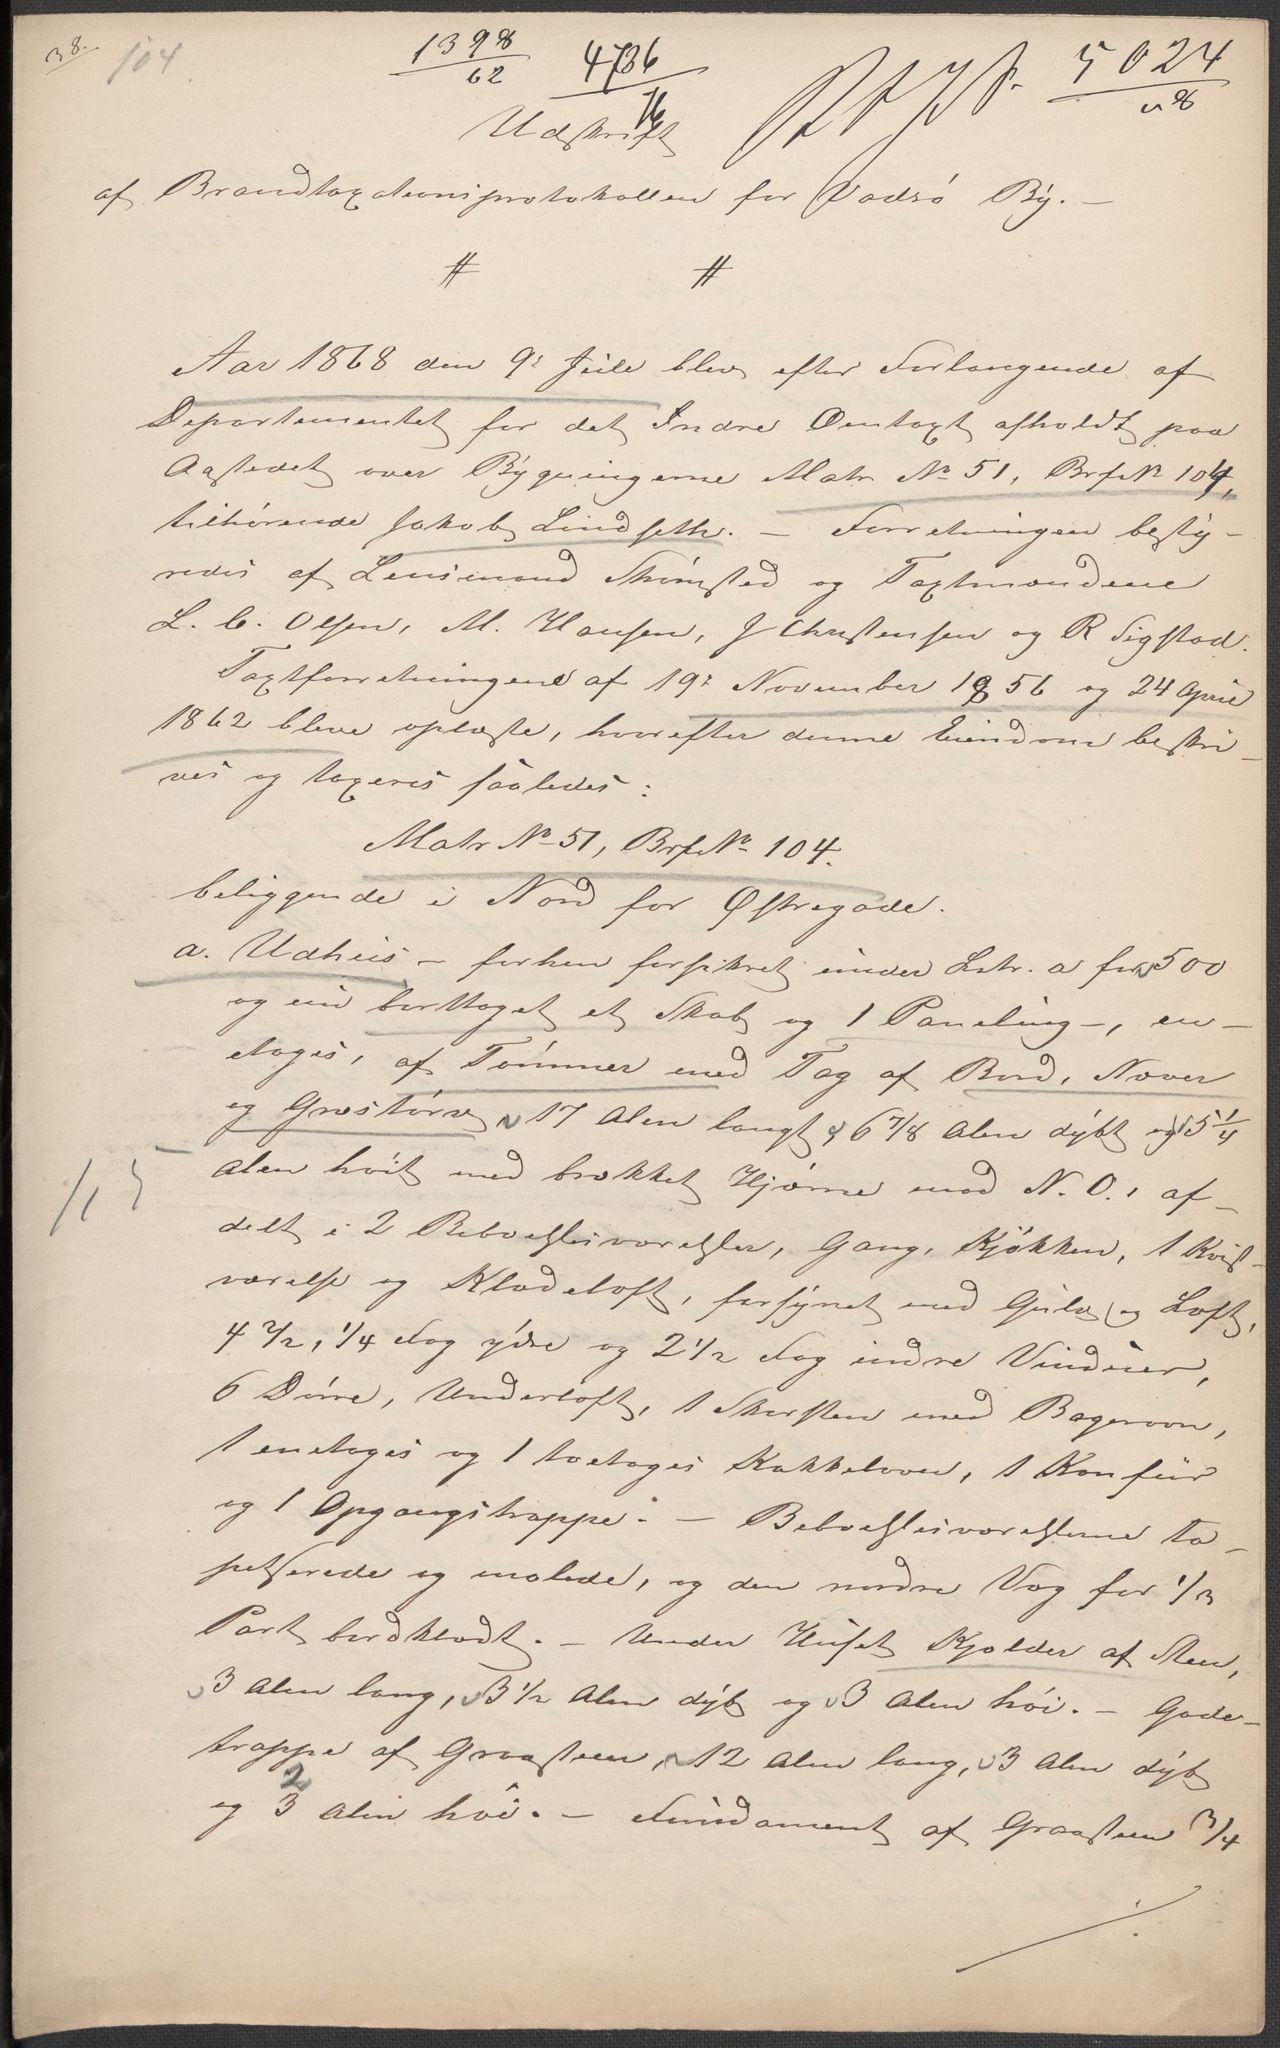 38. 104. 1398/62 4736/76 5024/68
Udskrift
af Brandtaxationsprotokollen for Vadsö By. –
# #
Aar 1868 den 9de Juli blev efter Forlangende af
Departementet for det Indre Omtaxt afholdt paa
Aastedet over Bygningerne Matr No 51, Brf No 104,
tilhørende Jakob Lindseth. – Forretningen besty-
redes af Lensmand Skimsted og Taxtmændene
L. C. Olsen, M. Hansen, J Christensen og R Sigstad.
Taxtforretningene af 19de November 1856 og 24 April
1862 bleve oplæste, hvorefter denne Eiendom beskri-
ves og taxeres saaledes:
Matr No 51, Brf No 104.
beliggende i Nord for Østregade.
a. Udhuus – forhen forsikret under Litr. a for 500
og nu borttaget et Skab og 1 Paneling –, en-
etages, af Tömmer med Tag af Bord, Næver
og Græstörv, 17 Alen langt, 6 7/8 Alen dybt og 5 1/4
Alen höit med brækket Hjörne mod N. O., af-
115
delt i 2 Beboelsesværelser, Gang, Kjökken, 1 Kvist-
værelse og Klædeloft, forsynet med Gulv og Loft,
4 2/2, 1/4 Fag ydre og 2 1/2 Fag indre Vinduer,
6 Dörre, Underloft, 1 Skorsten med Bagerovn,
1 enetages og 1 toetages Kakkelovn, 1 Komfur
og 1 Opgangstrappe. – Beboelsesværelserne ta-
petserede og malede, og den nordre Væg for 1/3
Part bordklædt. – Under Huset Kjelder af Sten,
3 Alen lang, 3 1/2 Alen dyb og 3 Alen höi. – Gade-
trappe af Graasteen, 12 Alen lang, 3 Alen dyb
2
og 3 Alen höi. – Fundament af Graasteen 3/4